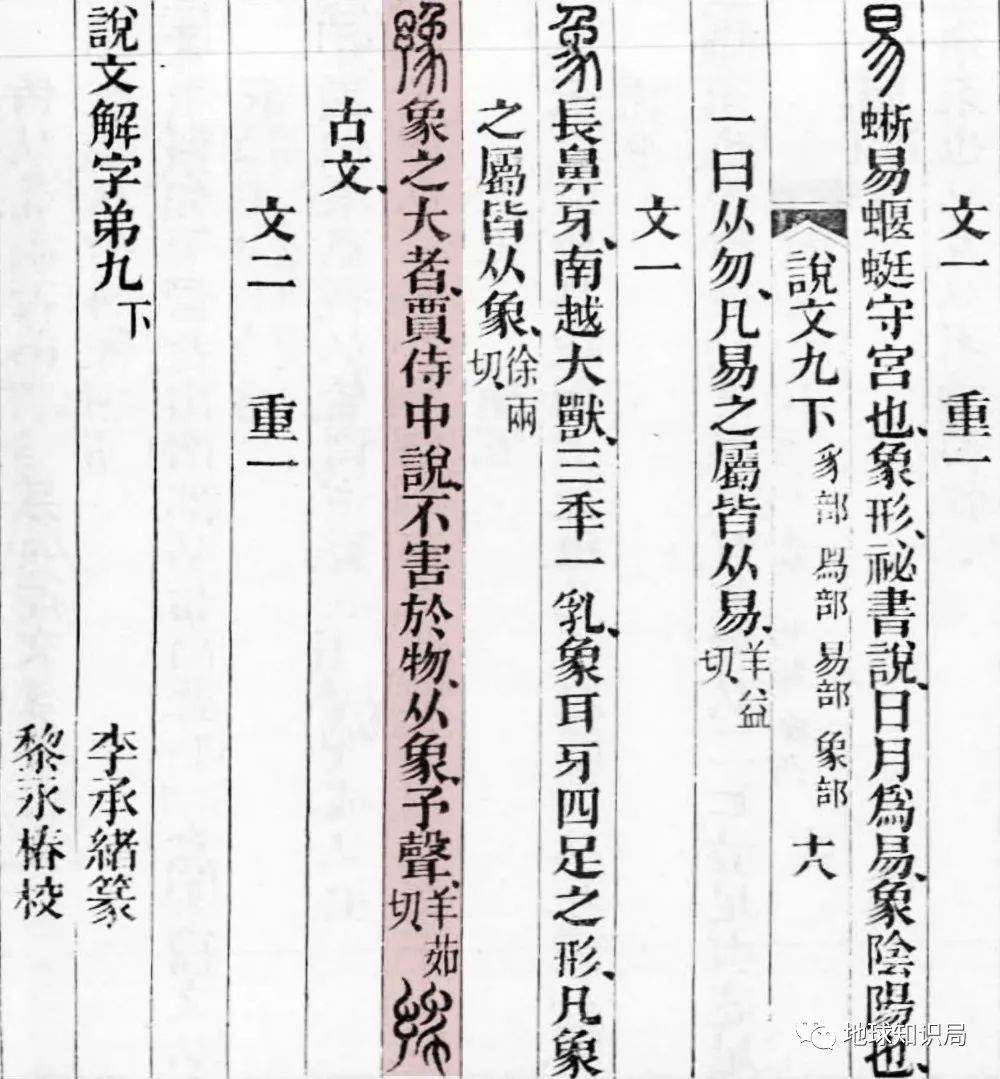 文一　重一
易 蜥易蝘蜓守宮也、象形、祕書說、日月爲易、象陰陽也、
說文九下 豸部 𤉡部 易部 象部 十八
一曰从勿、凡易之屬皆从易、羊益切、
文一
象 長鼻牙、南越大獸、三秊一乳、象耳牙四足之形、凡象
之屬皆从象、徐兩切、
豫 象之大者、賈侍中說、不害於物、从象、予聲、羊茹切、
古文、
文二　重一
說文解字弟九下　李承緒篆
黎永椿校
地球知识局